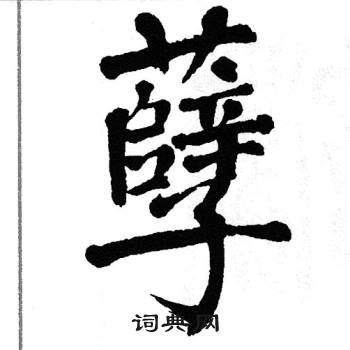 孽
词典网